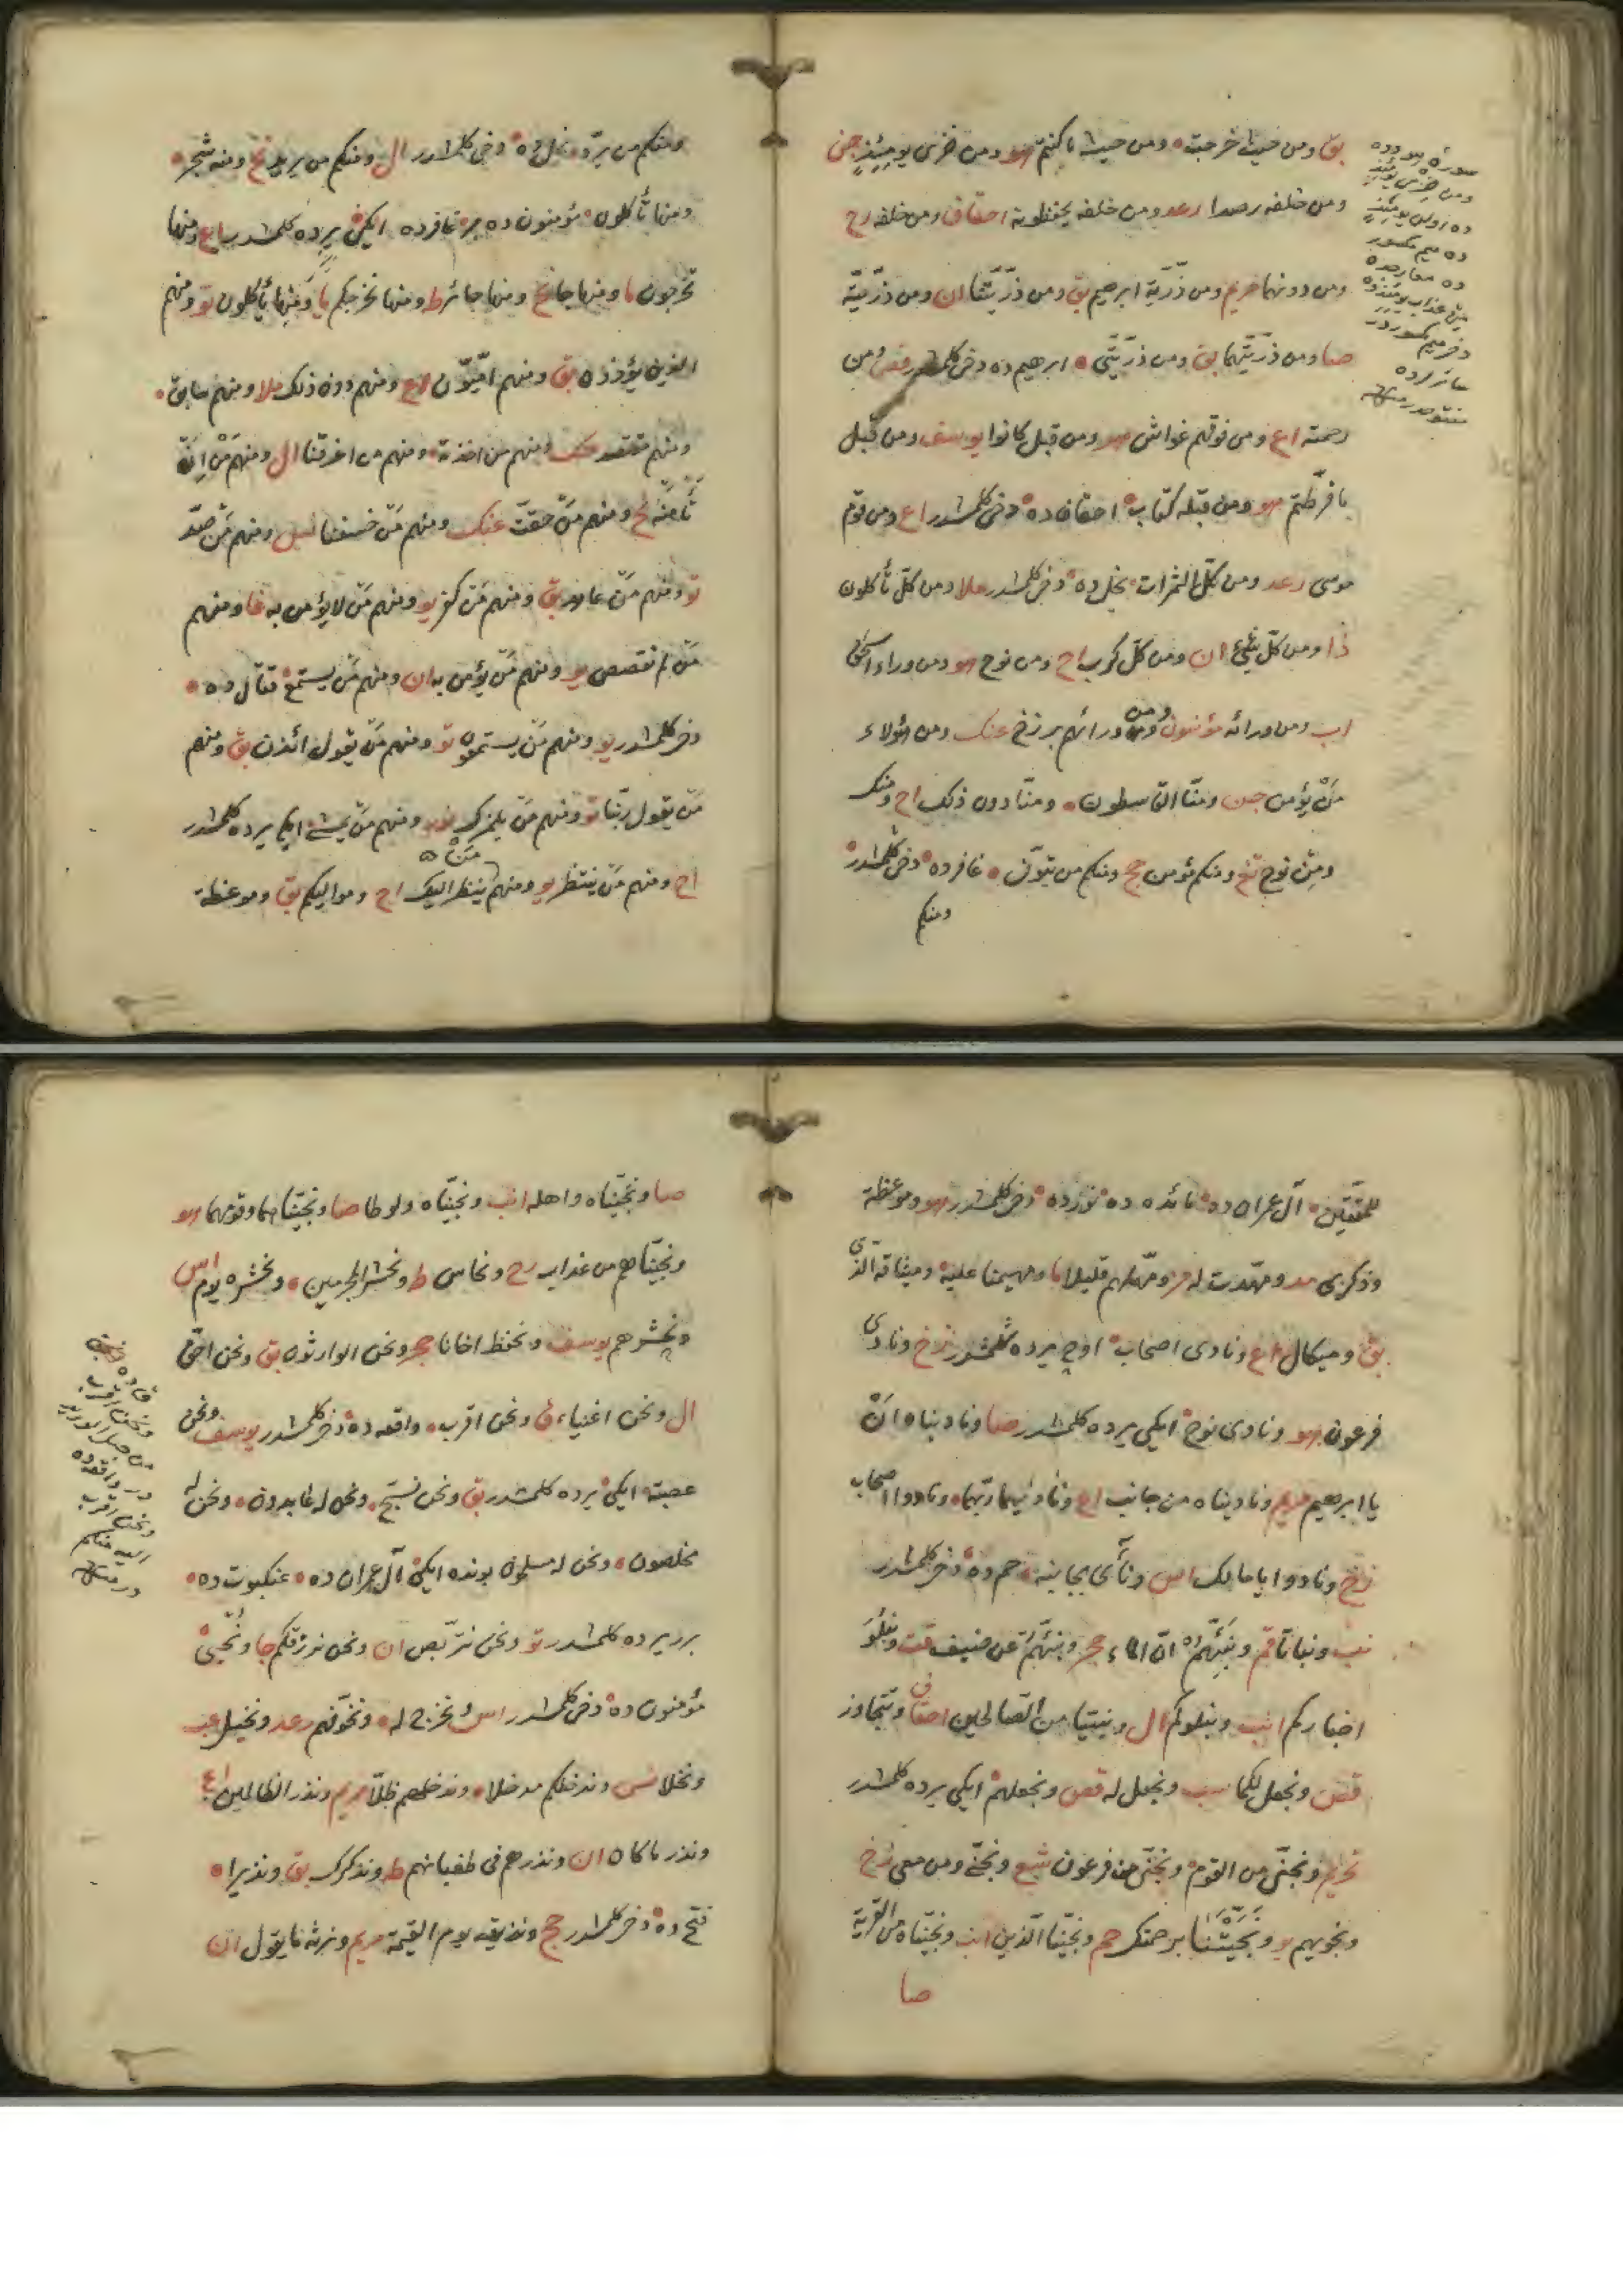 بق ومن حيث خرجت ومن حيث ما كنتم هود ومن خزى يومئذ جن
ومن خلفه رصدا رعد ومن خلفه يحفظونه احقاف ومن خلفه رح
ومن دونهما مريم ومن ذرّيّة ابرهيم بق ومن ذرّيّتنا ان ومن ذرّيّته
صا ومن ذرّيّتهما بق ومن ذرّيّتى ابرهيم ده دخى كلمشدر قص ومن
رحمته اع ومن فوقهم غواش هود ومن قبل كانوا يوسف ومن قبل
ما فرّطتم هود ومن قبله كتاب احقاف ده دخى كلمشدر اع ومن قوم
موسى رعد ومن كلّ الثمرات نحل ده دخى كلمشدر ملا ومن كلّ تأكلون
ذا ومن كلّ شئ ان ومن كلّ كرب اح ومن نوح هود ومن وراء اسحق
اب ومن ورائه مؤمنون ومن ورائهم برزخ عنك ومن هؤلاء
مَنْ يؤمن جن ومنّا القاسطون ومنّا دون ذلك اح ومنك
ومِنْ نوح تغ ومنكم مؤمن حج ومنكم من يتوفّى غافرده دخى كلمشدر
ومنكم
سوره هود ده
ومن خزى يومئذ
ده اولان يومئذ
ده ميم مكسور
ده معارجده
من عذاب يومئذ ده
دخى ميم مكسوردر
سائرلرده
مفتوحدر منه
ومنكم من يردّ نحل ده دخى كلمشدر ال ومنكم من يريد نح ومنه شجر
ومنها تأكلون مؤمنون ده غافرده ايكى يرده كلمشدر اع ومنها
تخرجون ما ومنها جا نح ومنها جائر ط ومنها نخرجكم يا ومنها يأكلون تو ومنهم
الذين يؤذون بق ومنهم امّيّون اع ومنهم دون ذلك ملا ومنهم سابق
ومنهم مقتصد عنك ومنهم من اخذته ومنهم من اغرقنا ال ومنهم مَنْ اِنْ
تأمنه نح ومنهم مَنْ حقّت عنك ومنهم مَنْ خسفنا نسا ومنهم مَنْ صدّ
تو ومنهم مَنْ عاهد بق ومنهم مَنْ كفر يو ومنهم مَنْ لا يؤمن به غا ومنهم
مَنْ لم نقصص يو ومنهم مَنْ يؤمن به ان ومنهم مَنْ يستمع قتال ده
دخى كلمشدر يو ومنهم مَنْ يستمعون تو ومنهم مَنْ يقول ائذن بق ومنهم
مَنْ يقول ربّنا تو ومنهم مَنْ يلمزك نور ومنهم مَنْ يمشى ايكى يرده كلمشدر
اح ومنهم مَنْ ينتظر يو ومنهم مَنْ ينظر اليك اح ومواليكم بق وموعظة
للمتّقين آل عمران ده مائده ده نورده دخى كلمشدر هود وموعظة
وذكرى مد ومهّدت له مز ومهّلهم قليلا ما ومهيمنا عليه وميثاقه الّذى
بق وميكال اع ونادى اصحاب اوچ يرده كلمشدر زخ ونادى
فرعون هود ونادى نوح ايكى يرده كلمشدر صا وناديناه اَنْ
يا ابرهيم مريم وناديناه من جانب اع وناديهما ربّهما ونادوا اصحاب
زخ ونادوا يا مالك اس ونأى بجانبه حم ده دخى كلمشدر
نب ونباتا قم ونبّئهم انّ الماء حجر ونبّئهم عن ضيف قت ونبلوَ
اخباركم انب ونبلوكم ال ونبيّا من الصّالحين احقاف ونتجاوز
قص ونجعل لكما سب ونجعل له قص ونجعلهم ايكى يرده كلمشدر
تحريم ونجّنى من القوم ونجّنى من فرعون شع ونجّنى ومن معى زخ
ونجويهم يو ونجّنا برحمتك حم ونجّينا الّذين انب ونجّيناه من القرية
صا
صا ونجّيناه واهله انب ونجّيناه ولوطا صا ونجّيناهما وقومهما هود
ونجّيناهم من عذاب رح ونحاس ط ونحشر المجرمين ونحشره يوم اس
ونحشرهم يوسف ونحفظ اخانا حجر ونحن الوارثون بق ونحن احقّ
ال ونحن اغنياء ق ونحن اقرب واقعه ده دخى كلمشدر يوسف ونحن
عصبة ايكى يرده كلمشدر بق ونحن نسبّح ونحن له عابدون ونحن له
مخلصون ونحن له مسلمون بونده ايكى آل عمران ده عنكبوت ده
برر يرده كلمشدر تو ونحن نتربّص ان ونحن نرزقكم جا ونحيى
مؤمنون ده دخى كلمشدر اس ونخرج له ونخوّفهم رعد ونخيل عبـ
ونخلا نس وندخلكم مدخلا وندخلهم ظلّا مريم ونذر الظالمين اع
ونذر ما كان ان ونذرهم فى طغيانهم ط ونذكرك بق ونذيرا
فتح ده دخى كلمشدر حج ونذيقه يوم القيمة مريم ونرثه ما يقول ان
ق ده
ونحن اقرب
من حبل الوريد
در واقعه ده
ونحن اقرب
اليه منكم
در منه